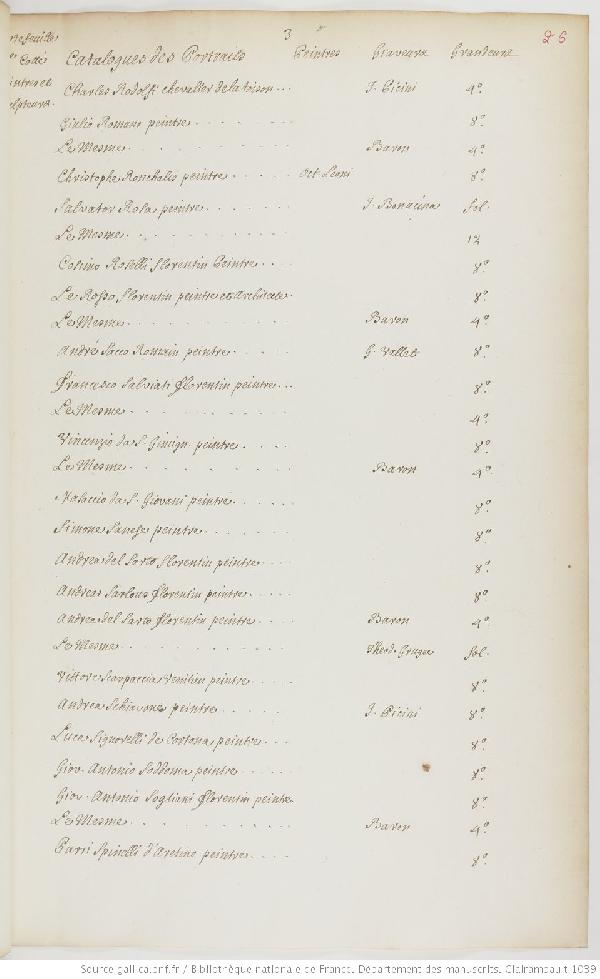 3
26
rtefeuille
Cotté
intres et
ulpteurs.
Catalogues des Portraits Peintres Graveurs Grandeurs
Charles Rodolfi chevalier de la toison... J. Picini 4º.
Giulio Romano peintre........ 8º.
Le Mesme........... Baron 4º.
Christophe Ronchalis peintre...... Oct. Leoni 8º.
Salvator Rosa peintre........ J. Bonacina fol.
Le Mesme........... 12
Cosimo Roselli florentin Peintre.... 8º.
Le Rosso florentin peintre et architecte. 8º.
Le Mesme........... Baron 4º.
André Sacco Romain peintre..... G. Vallet 8º.
Francesco Salviati florentin peintre... 8º.
Le Mesme........... 4º.
Vincenzio da S. Gimign. peintre..... 8º.
Le Mesme........... Baron 4º.
Masaccio da S. Giovani peintre..... 8º.
Simone Sanese peintre....... 8º.
Andrea del Sarto florentin peintre... 8º.
Andreas Sartous florentin peintre.... 8º
Andrea del Sarto florentin peintre.... Baron 4º.
Le Mesme........... Theod. Cruger fol.
Vittore Scarpaccia Venitien peintre.... 8º.
Andrea Schiavone peintre...... J. Picini 8º.
Luca Signorelli de Cortona peintre... 8º.
Giov. Antonio Soddoma peintre.... 8º.
Giov. Antonio Sogliani florentin peintre. 8º.
Le Mesme........... Baron 4º.
Parri Spinelli d'Aretino peintre.... 8º.
Source gallica.bnf.fr / Bibliothèque nationale de France. Département des manuscrits. Clairambault 1039